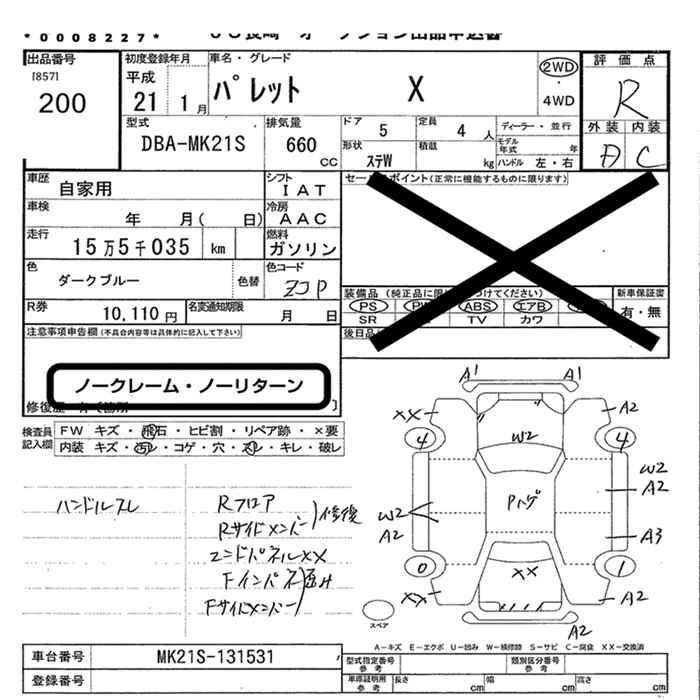 *0008227*
出品番号
[857]
200
初度登録年月
平成
21 1月
車名・グレード
パレット X
2WD
・
4WD
評価点
R
外装 内装
D C
型式
DBA-MK21S
排気量
660
cc
ドア
5
定員
4 人
ディーラー・並行
形状
ステW
積載
kg
モデル年式 年
ハンドル 左・右
車歴
自家用
シフト
IAT
車検
年 月( 日)
冷房
AAC
走行
15万5千035 km
燃料
ガソリン
色
ダークブルー
色替
色コード
ZJP
R券
10,110円
名変通知期限
月 日
セールスポイント(正常に機能するものに限ります)
装備品
PS
ABS
エアB
SR
TV
カワ
新車保証書
有・無
注意事項申告欄(不具合内容等は具体的に記入して下さい)
ノークレーム・ノーリターン
検査員記入欄
FW キズ・飛石・ヒビ割・リペア跡・×要
内装 キズ・汚レ・コゲ・穴・スレ・キレ・破レ
ハンドルスレ
Rフロア
Rサイドメンバー 修復
エンドパネルXX
Fインパネ
Fサイドメンバー
A1 A1
XX A2
4 4
W2
W2
A2
Pハゲ
W2
A2
A3
0 1
XX
XX A2
A2
スペア
A－キズ E－エクボ U－凹み W－補修跡 S－サビ C－腐食 XX－交換済
車台番号
MK21S-131531
登録番号
型式指定番号
参考
類別区分番号
参考
車庫証明用
参考
長さ cm
幅 cm
高さ cm